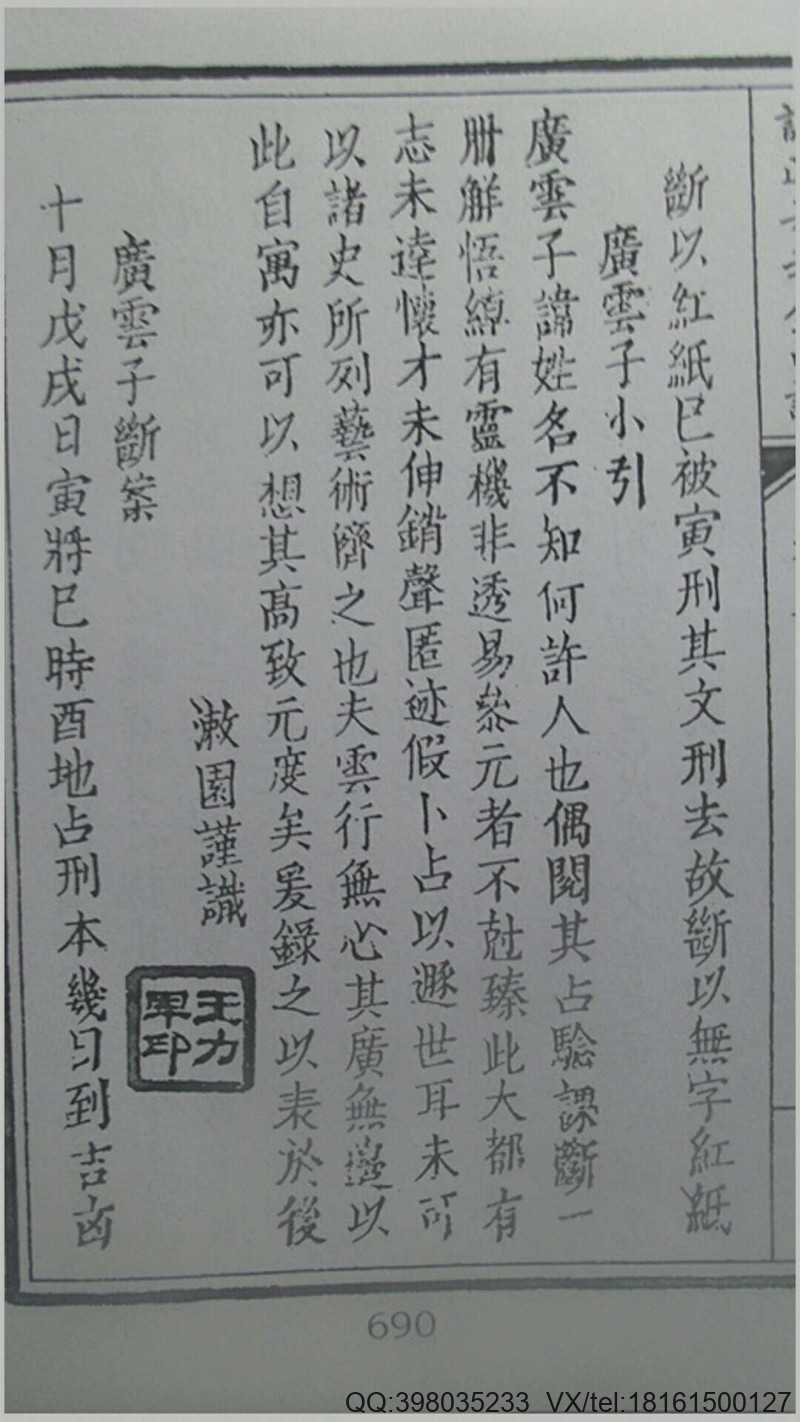 斷以紅紙巳被寅刑其文刑去故斷以無字紅紙
廣雲子小引
廣雲子諱姓名不知何許人也偶閱其占驗課斷一
册觧悟綠有靈機非透易叅元者不尅臻此大都有
志未達懷才未伸銷聲匿迹假卜占以遯世耳未可
以諸史所列藝術儕之也夫雲行無心其廣無邉以
此自寓亦可以想其髙致元度矣爰錄之以表於後
漱園謹識
王力軍印
廣雲子斷案
十月戊戌日寅將巳時酉地占刑本幾日到吉凶
690
QQ:398035233 VX/tel:18161500127